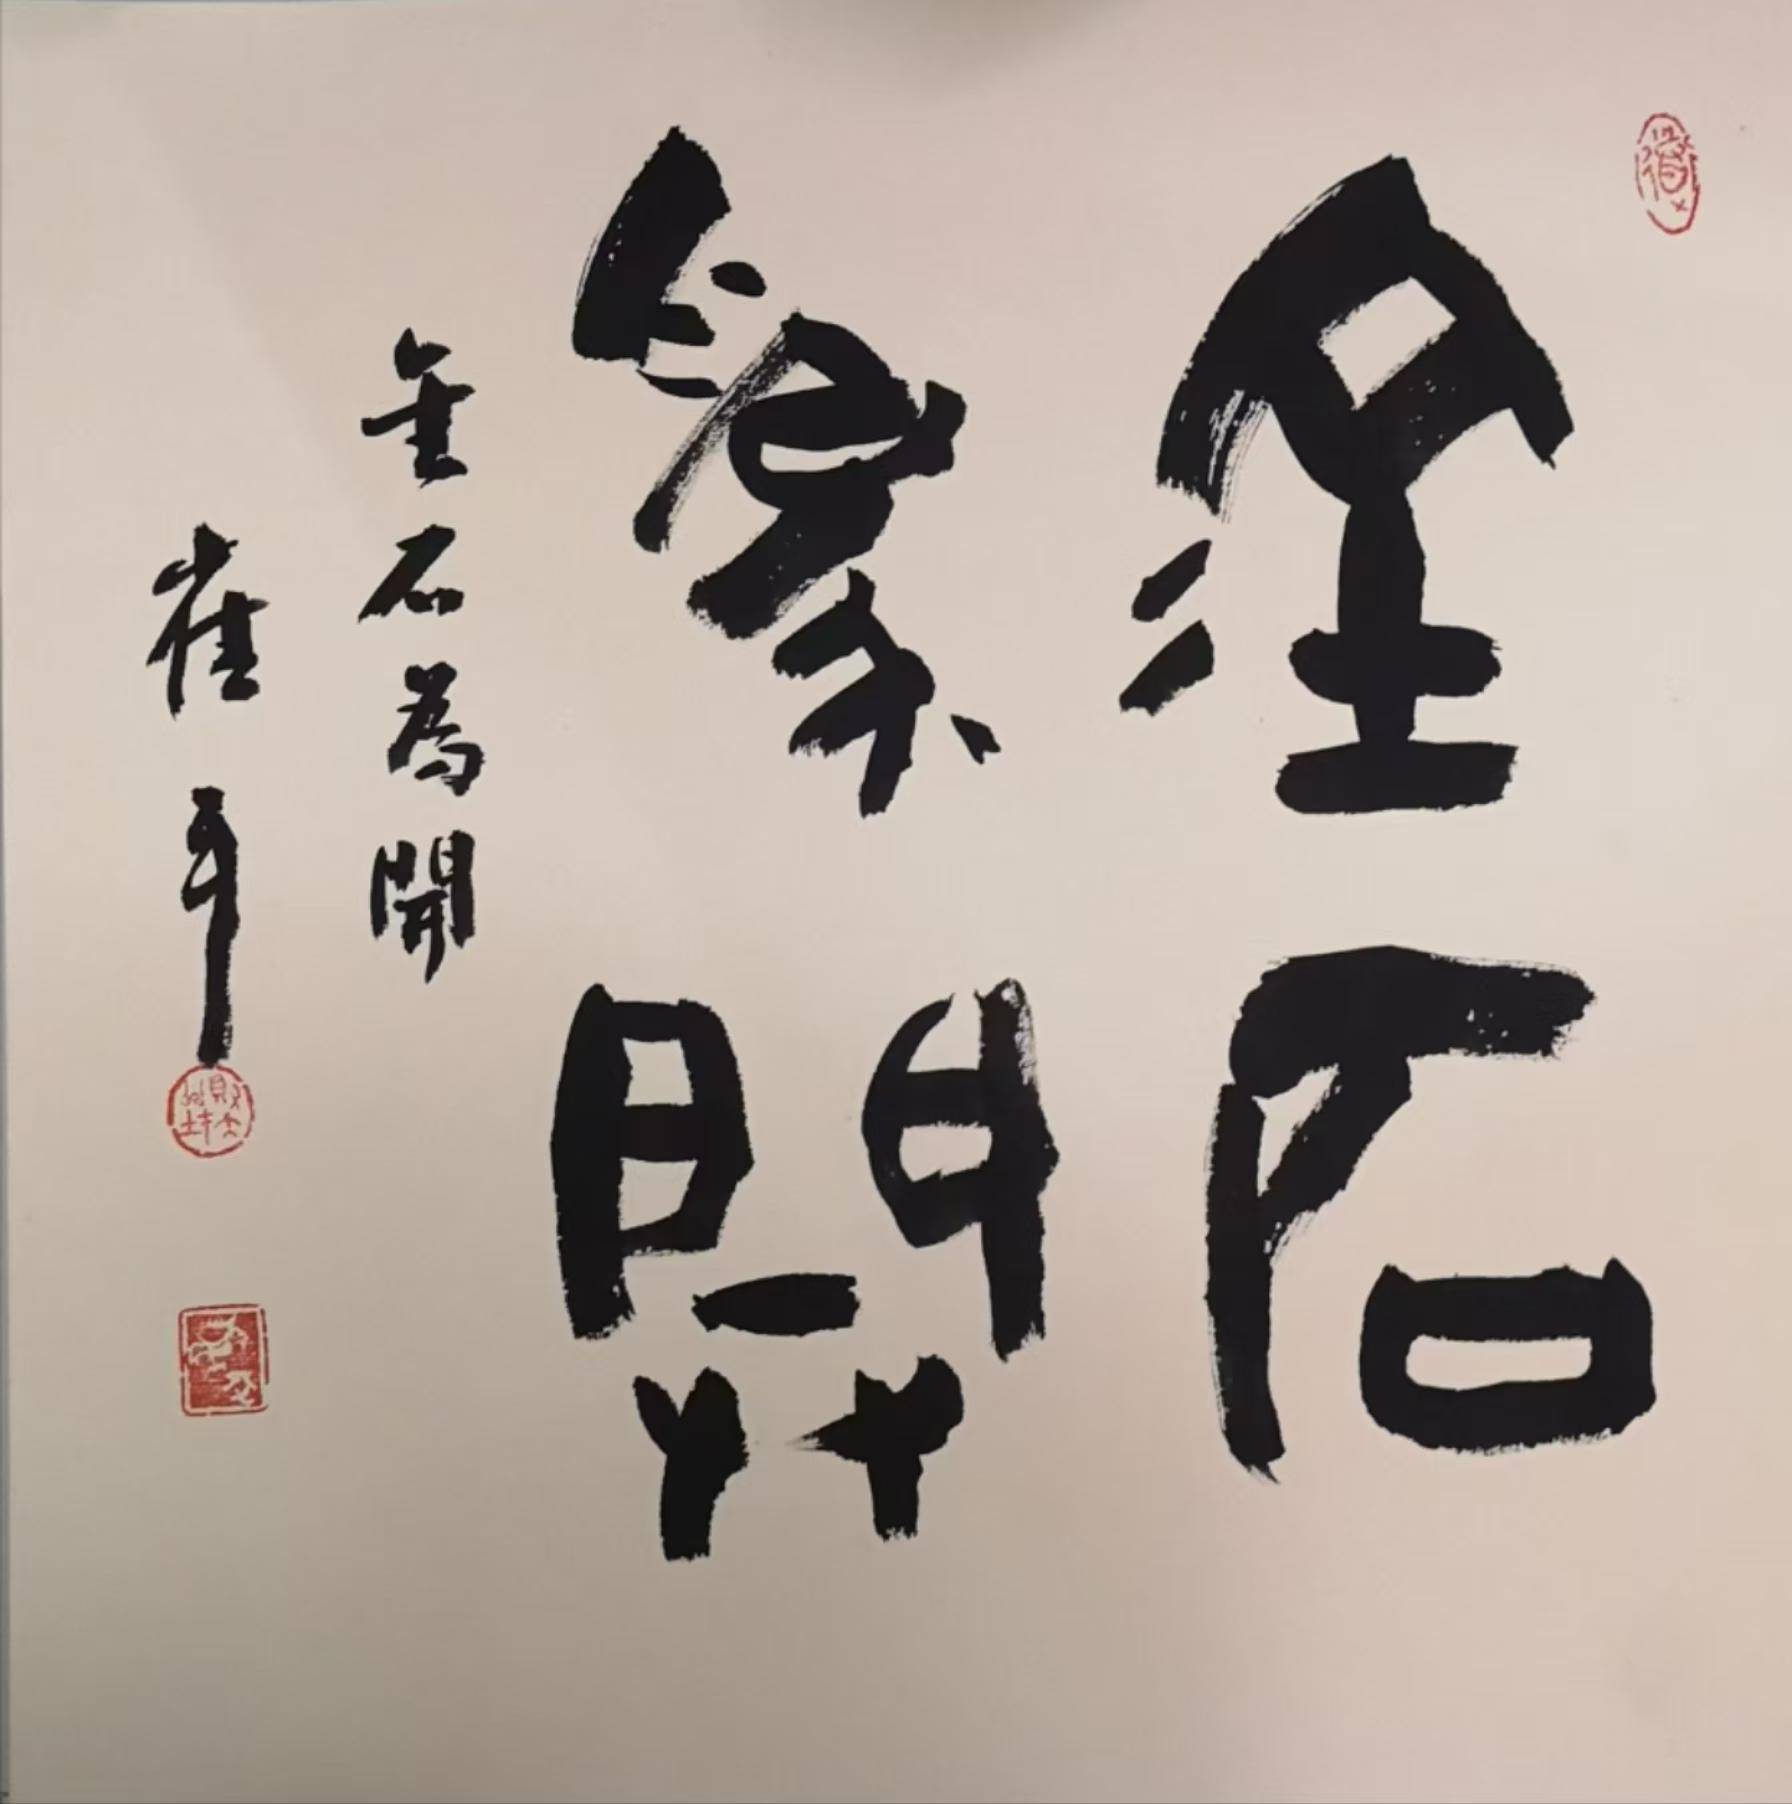 金石
為開
金石為開
崔平